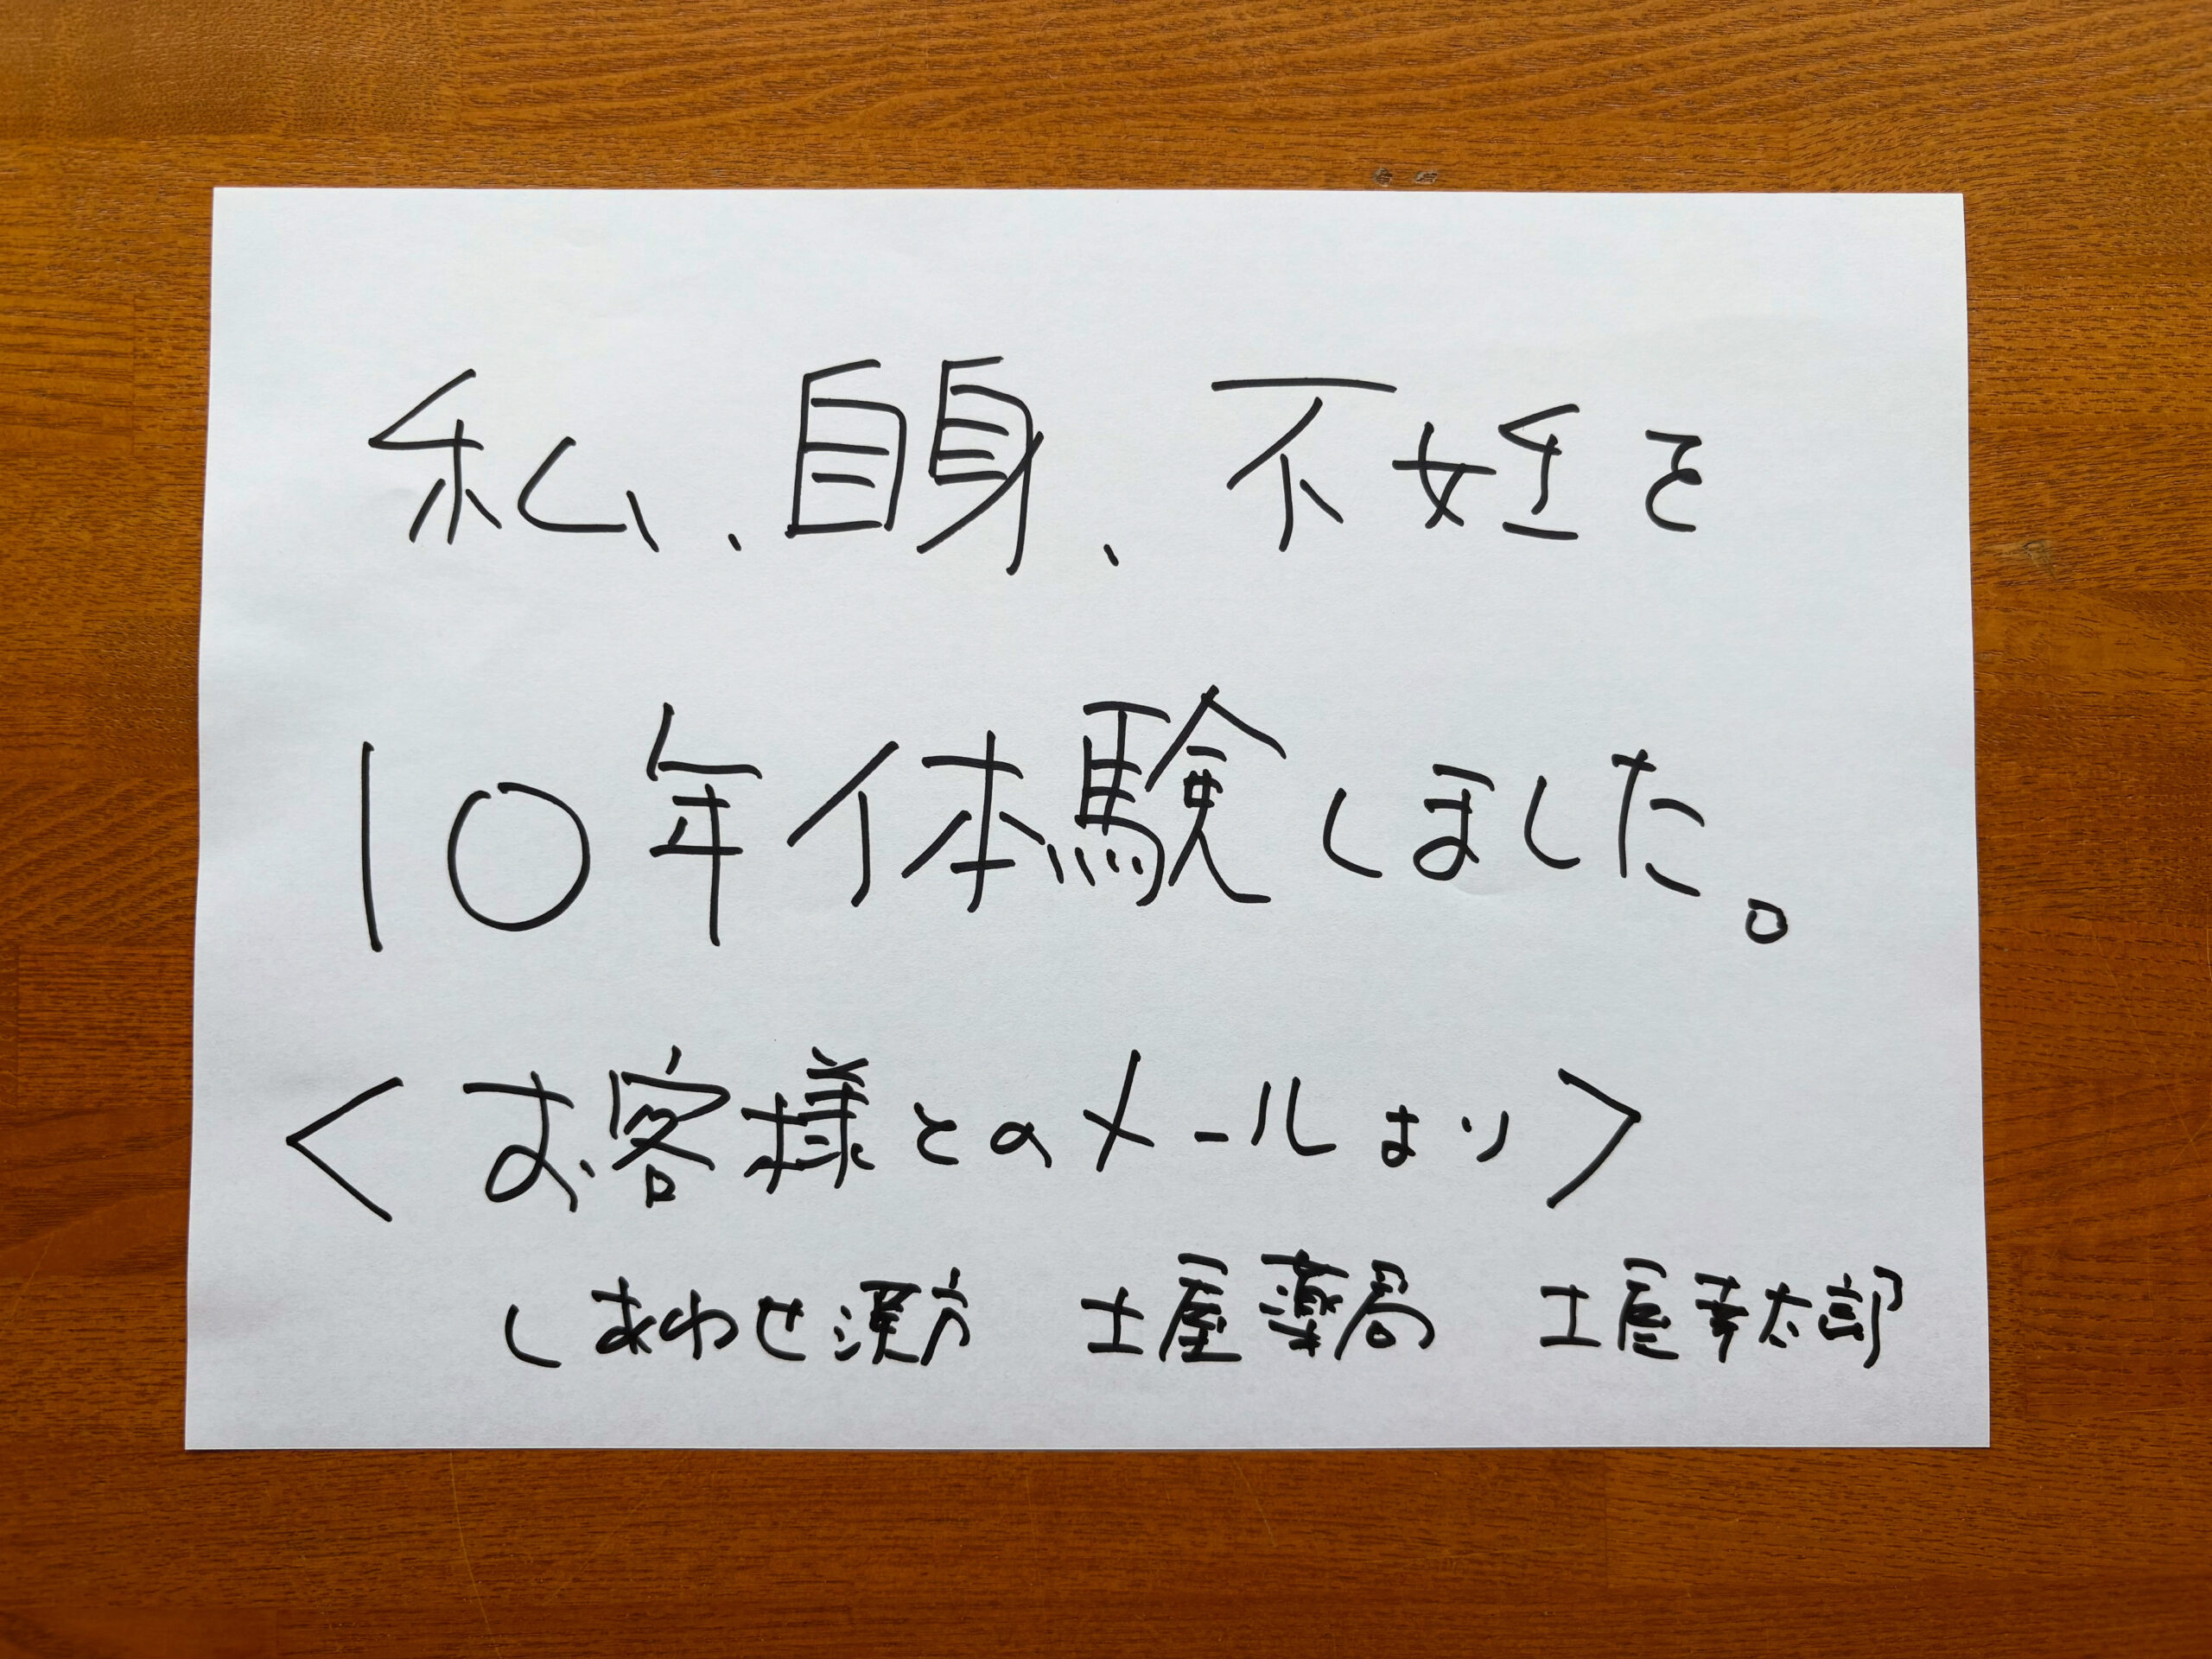 私、自身、不妊を
10年体験しました。
<お客様とのメールより>
しあわせ漢方 土屋薬局 土屋幸太郎